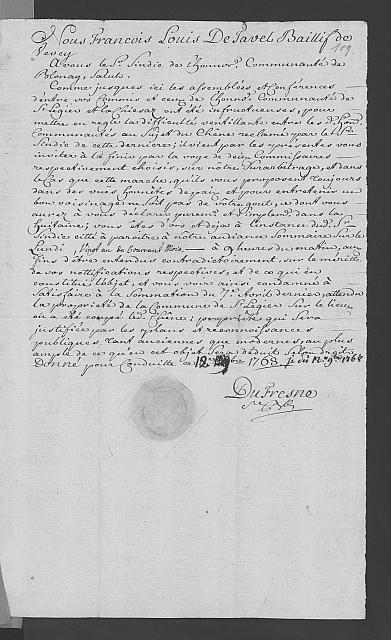 Nous François Louis De Tavel Baillif de
Vevey
109.
A vous le Sr. Sindic de l'honnor. Communauté de
Blonay, Salut.
Comme jusques ici les assemblées et Conférences
d'entre vos Commis et ceux de l'honor. Communauté de
St. Légier et la Chiesaz ont été infructueuses, pour
mettre en regle la difficulté ventillante entre les d. hon.
Communautés au Sujet du Chêne reclamé par le Sr.
Sindic de cette derniere; il vient par les présentes vous
inviter à la finir par la voye de deux Commissaires
respectivement choisis, sur notre Surarbitrage, et dans
le Cas que cette marche, qu'ils vous proposent toujours
dans des vuës honnêtes de paix et pour entretenir un
bon voisinage ne soit pas de votre gout, ce dont vous
aurez à vous déclarer purem. et Simplem. dans la
huitaine; vous êtes d'ors et déja à l'instance du d. Sr.
Sindic cité à paroitre à notre audiance Sommaire sur le
Lundi vingt un du Courrant Mois à 9 heures du matin, aux
fins d'être entendus contradictoirement, sur le mérite
de vos nottifications respectives, et de ce qui en
constitue l'objet, et vous voir ainsi condamné à
Satisfaire à la Sommation du 7e. Avril dernier, attendu
la propriété de la Commune de St. Légier Sur le lieu
où a été coupé le Chêne; propriété qui Sera
justifiée par les plans et reconnoissances
publiques, tant anciennes que modernes, au plus
ample de ce qu'en cet objet Sera déduit Selon droit.
Donné pour Conduitte ce 12 1768
DuFresne